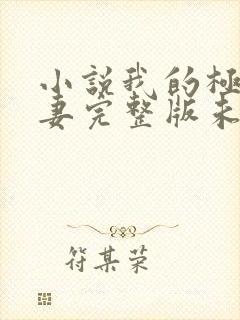 小説我的極
妻完整版未
符某荣